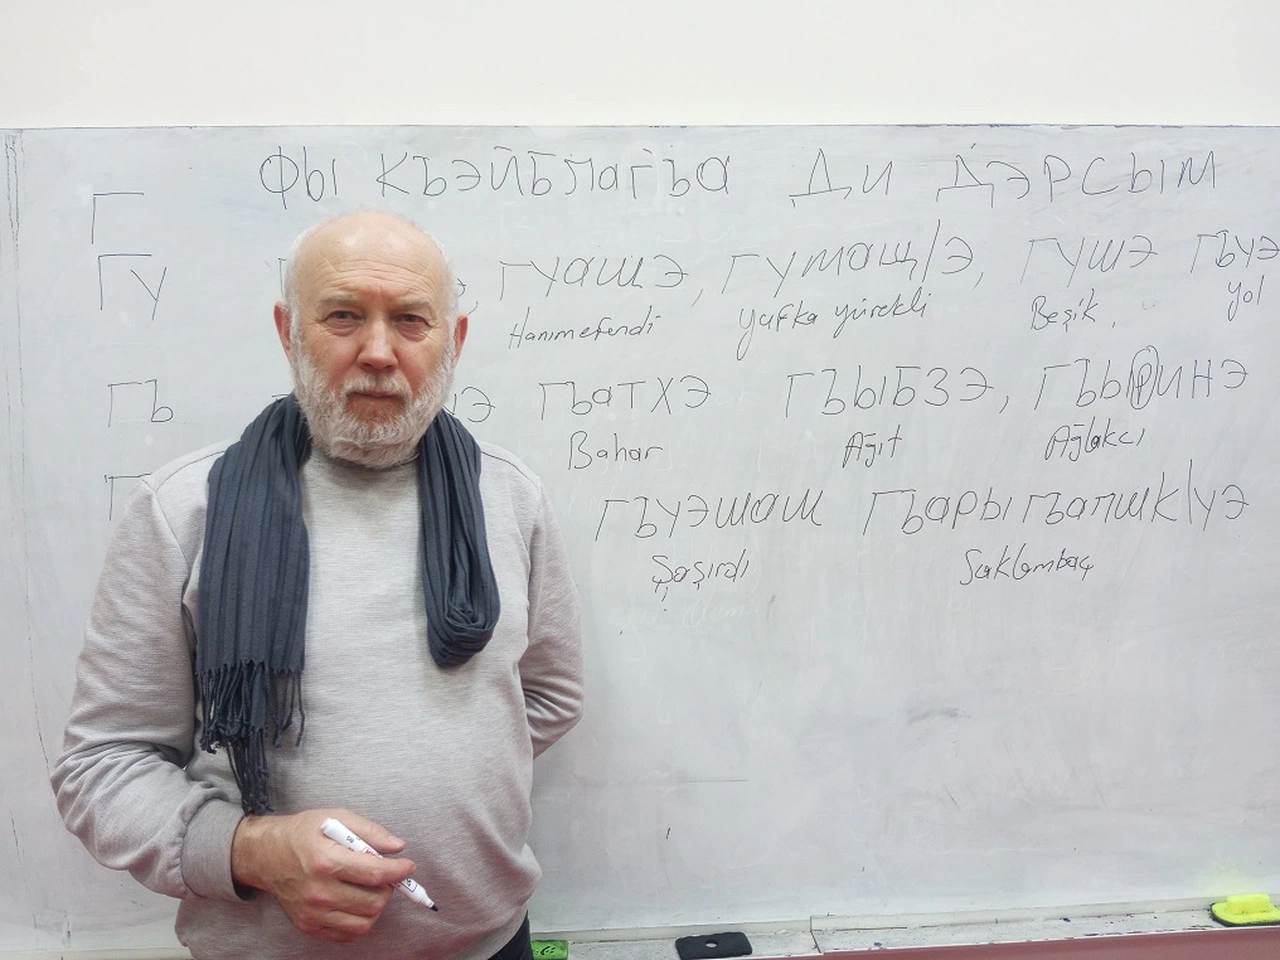 ФЫ КЪЭЙБлАГЪА ДИ ДЭРСЫМ
Г
Гу ГУАШЭ, ГУМАЩ/Э, ГУШЭ ГЪУЭ
Hanımefendi yufka yürekli Beşik, yol
ГЪ ГЪАТХЭ ГЪЫБЗЭ, ГЪЫРИНЭ
Bahar Ağıt Ağlakcı
ГЪУЭШАШ ГЪАРЫГЪАПШКIУЭ
Şaşırdı Saklambaç